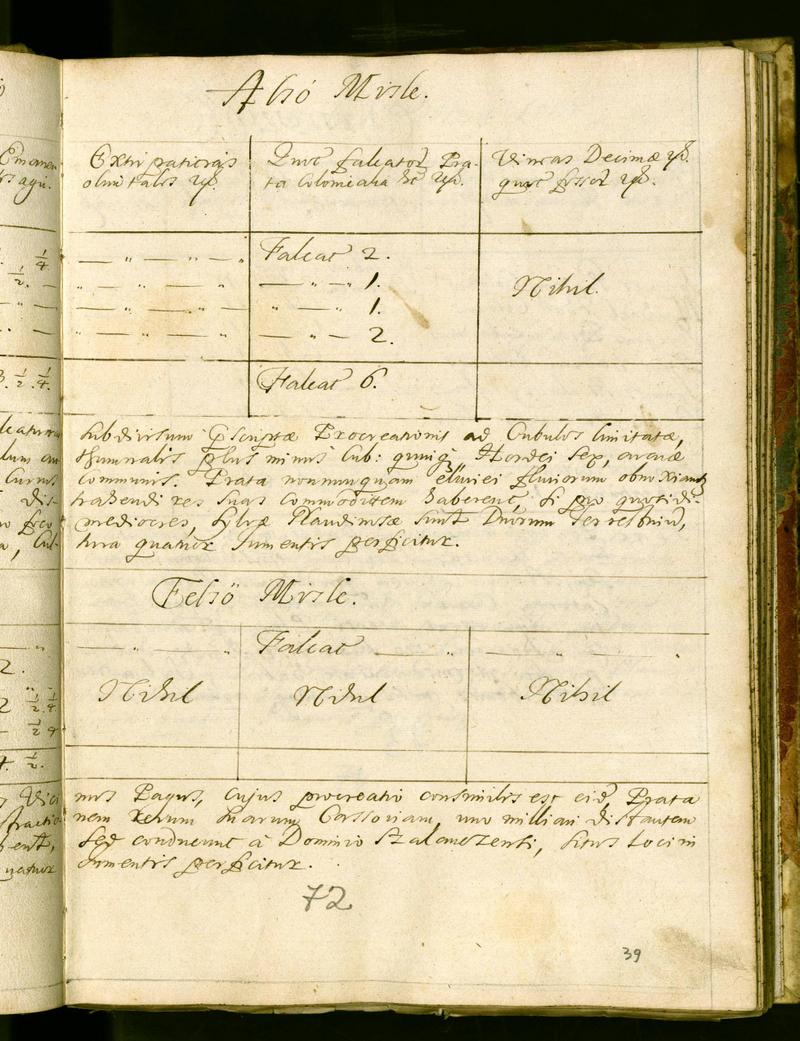 Alsó Misle.
Extirpationis
Quot falcator Pra-
Vineas Decimæ
ta Colonicalia
quot fossor
Falcat 2.
1.
Nihil.
1.
2.
Falcat 6.
Subdivisum Procreationis ad Cubulos limitatæ,
thumnalis plus minus Cub: quinq Hordei sex, avenæ
communis. Prata nonnunquam eluviei fluviorum obnoxiantur
trahendi res suas Commoditem haberent, si pro quotidi-
mediocres, sylvæ Plaudimsæ sunt Dnorum Terrestrium,
tura quatuor Jumentis perficitur.
Felsö Misle.
Falcat
Nihil Nihil Nihil
mus Pagus, cujus procreatio consimilis est eid, Prata
nem rerum suarum Cassoviam, uno milliari distantem
sed conducunt à Dominio Szalanczensi, situs Loci in
Jumentis perficitur.
72
39